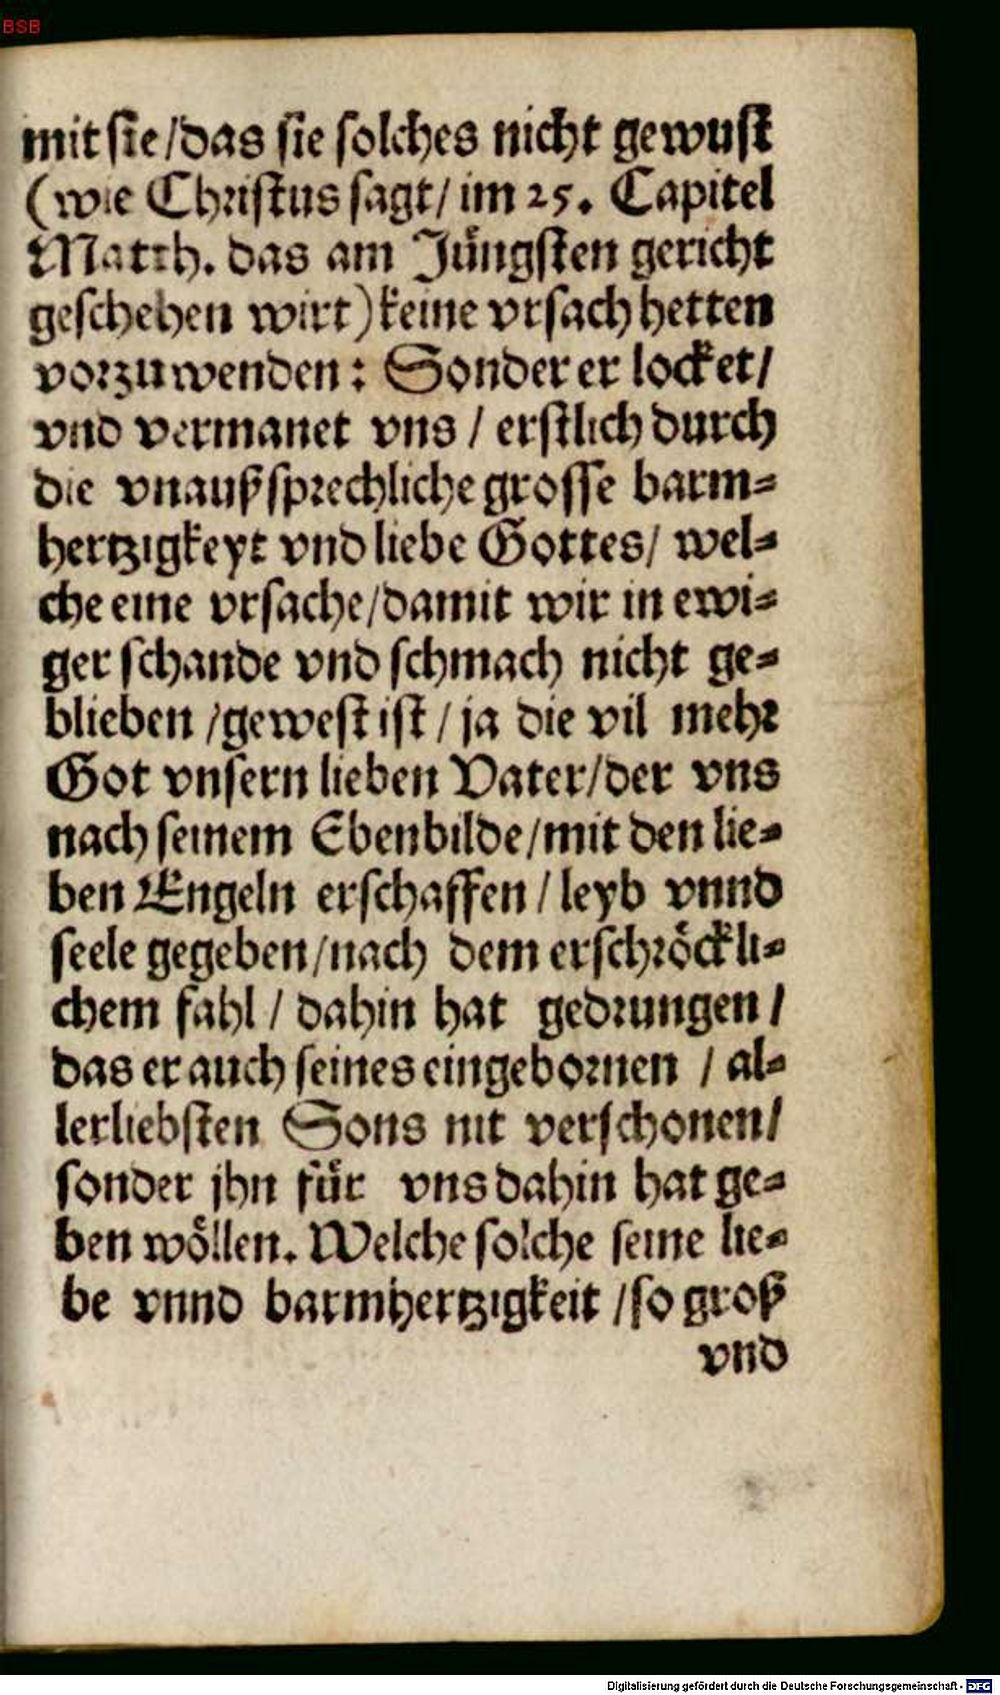 BSB
mit sie / das sie solches nicht gewust
(wie Christus sagt / im 25. Capitel
Matth. das am Jüngsten gericht
geschehen wirt) keine vrsach hetten
vorzuwenden: Sonder er locket /
vnd vermanet vns / erstlich durch
die vnaußsprechliche grosse barm-
hertzigkeyt vnd liebe Gottes / wel-
che eine vrsache / damit wir in ewi-
ger schande vnd schmach nicht ge-
blieben / gewest ist / ja die vil mehr
Got vnsern lieben Vater / der vns
nach seinem Ebenbilde / mit den lie-
ben Engeln erschaffen / leyb vnnd
seele gegeben / nach dem erschröckli-
chem fahl / dahin hat gedrungen /
das er auch seines eingebornen / al-
lerliebsten Sons nit verschonen /
sonder jhn für vns dahin hat ge-
ben wöllen. Welche solche seine lie-
be vnnd barmhertzigkeit / so groß
vnd
Digitalisierung gefördert durch die Deutsche Forschungsgemeinschaft - DFG